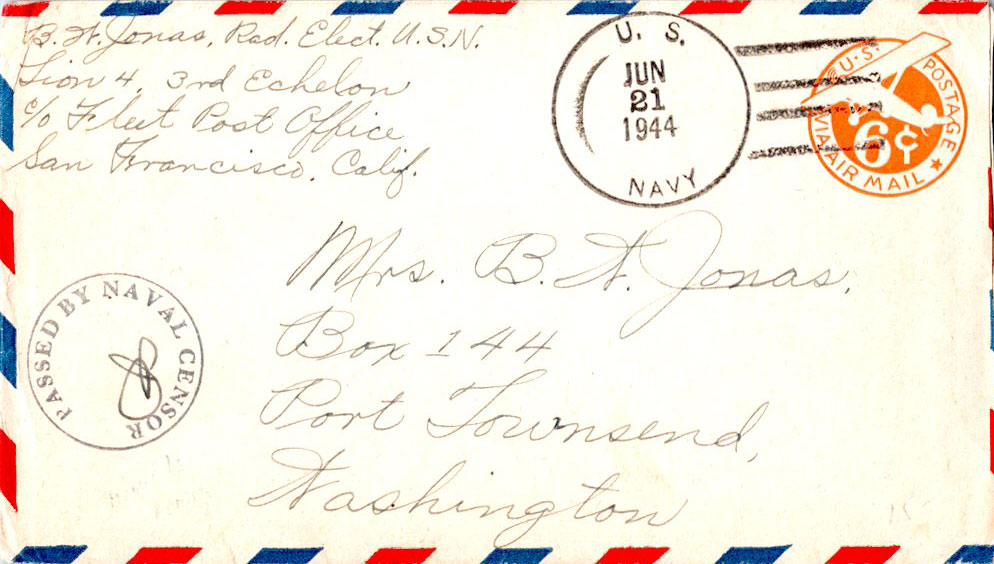 B. W. Jonas, Rad. Elect. U.S.N.
Lion 4, 3rd Echelon
c/o Fleet Post Office
San Francisco, Calif.
U. S.
JUN
21
1944
NAVY
U.S. POSTAGE
6¢
VIA AIR MAIL
Mrs. B. W. Jonas,
Box 144
Port Townsend,
Washington
PASSED BY NAVAL CENSOR